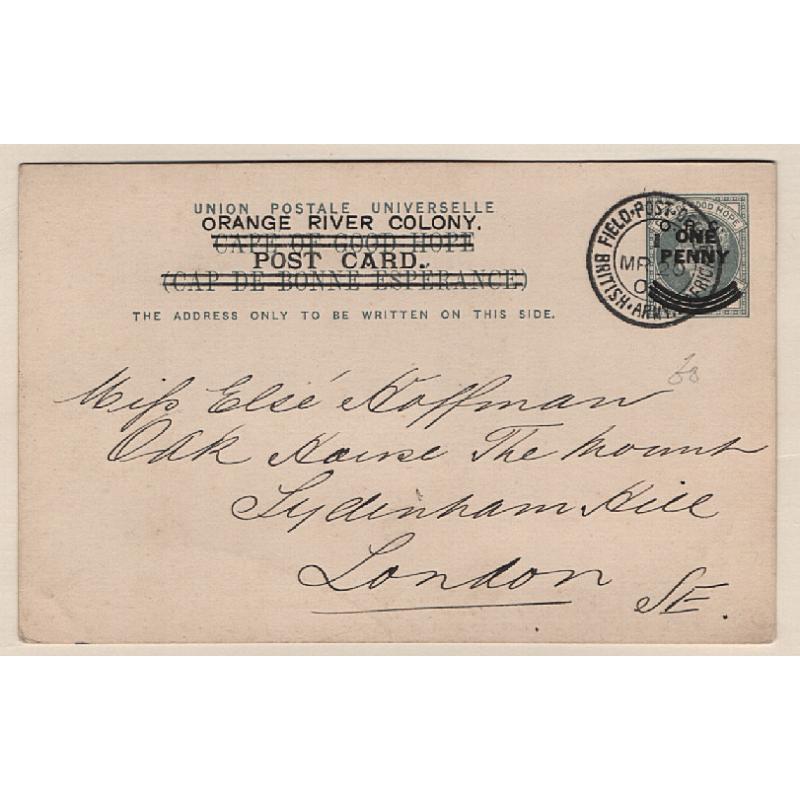 UNION POSTALE UNIVERSELLE
ORANGE RIVER COLONY.
CAPE OF GOOD HOPE
POST CARD.
(CAP DE BONNE ESPÉRANCE)
THE ADDRESS ONLY TO BE WRITTEN ON THIS SIDE.
GOOD HOPE
ONE
PENNY
FIELD·POST·OFFICE
BRITISH·ARMY
MR 20
Miss Elsé Hoffman
Oak House The Mount
Sydenham Hill
London
SE.